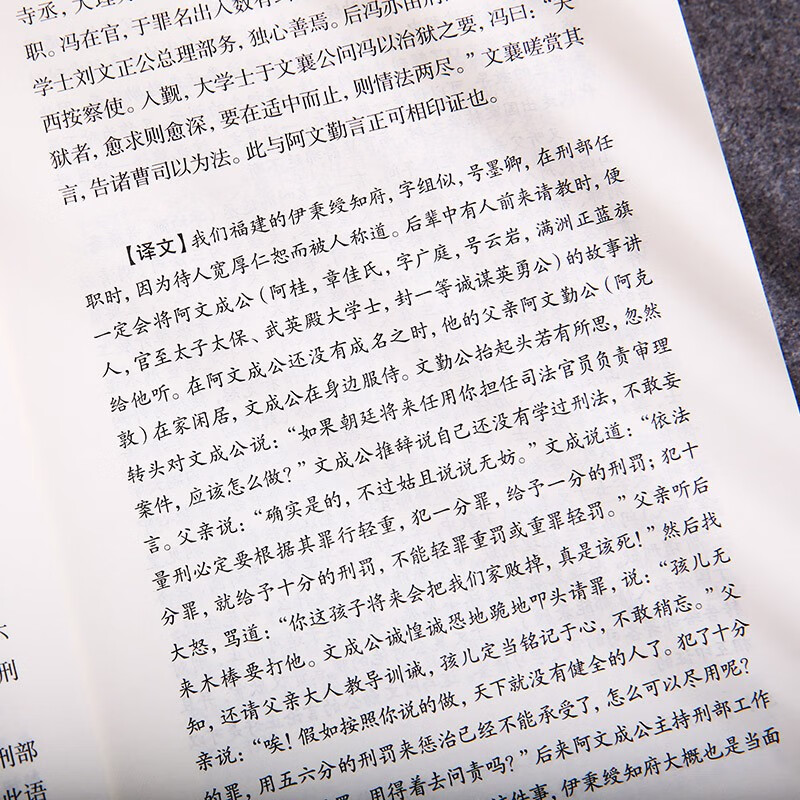 寺丞，大理
职。冯在官，于罪名出入数有
学士刘文正公总理部务，独心善焉。后冯亦由
西按察使。入觐，大学士于文襄公问冯以治狱之要，冯曰：“夫
狱者，愈求则愈深，要在适中而止，则情法两尽。”文襄嗟赏其
言，告诸曹司以为法。此与阿文勤言正可相印证也。
【译文】我们福建的伊秉绶知府，字组似，号墨卿，在刑部任
职时，因为待人宽厚仁恕而被人称道。后辈中有人前来请教时，便
一定会将阿文成公（阿桂，章佳氏，字广庭，号云岩，满洲正蓝旗
人，官至太子太保、武英殿大学士，封一等诚谋英勇公）的故事讲
给他听。在阿文成公还没有成名之时，他的父亲阿文勤公（阿克
敦）在家闲居，文成公在身边服侍。文勤公抬起头若有所思，忽然
转头对文成公说：“如果朝廷将来任用你担任司法官员负责审理
案件，应该怎么做？”文成公推辞说自己还没有学过刑法，不敢妄
言。父亲说：“确实是的，不过姑且说说无妨。”文成说道：“依法
量刑必定要根据其罪行轻重，犯一分罪，给予一分的刑罚；犯十
分罪，就给予十分的刑罚，不能轻罪重罚或重罪轻罚。”父亲听后
大怒，骂道：“你这孩子将来会把我们家败掉，真是该死！”然后找
来木棒要打他。文成公诚惶诚恐地跪地叩头请罪，说：“孩儿无
知，还请父亲大人教导训诫，孩儿定当铭记于心，不敢稍忘。”父
亲说：“唉！假如按照你说的做，天下就没有健全的人了。犯了十分
的罪，用五六分的刑罚来惩治已经不能承受了，怎么可以尽用呢？
罪，用得着去问责吗？”后来阿文成公主持刑部工作
这件事，伊秉绶知府大概也是当面
刑
刑部
此语